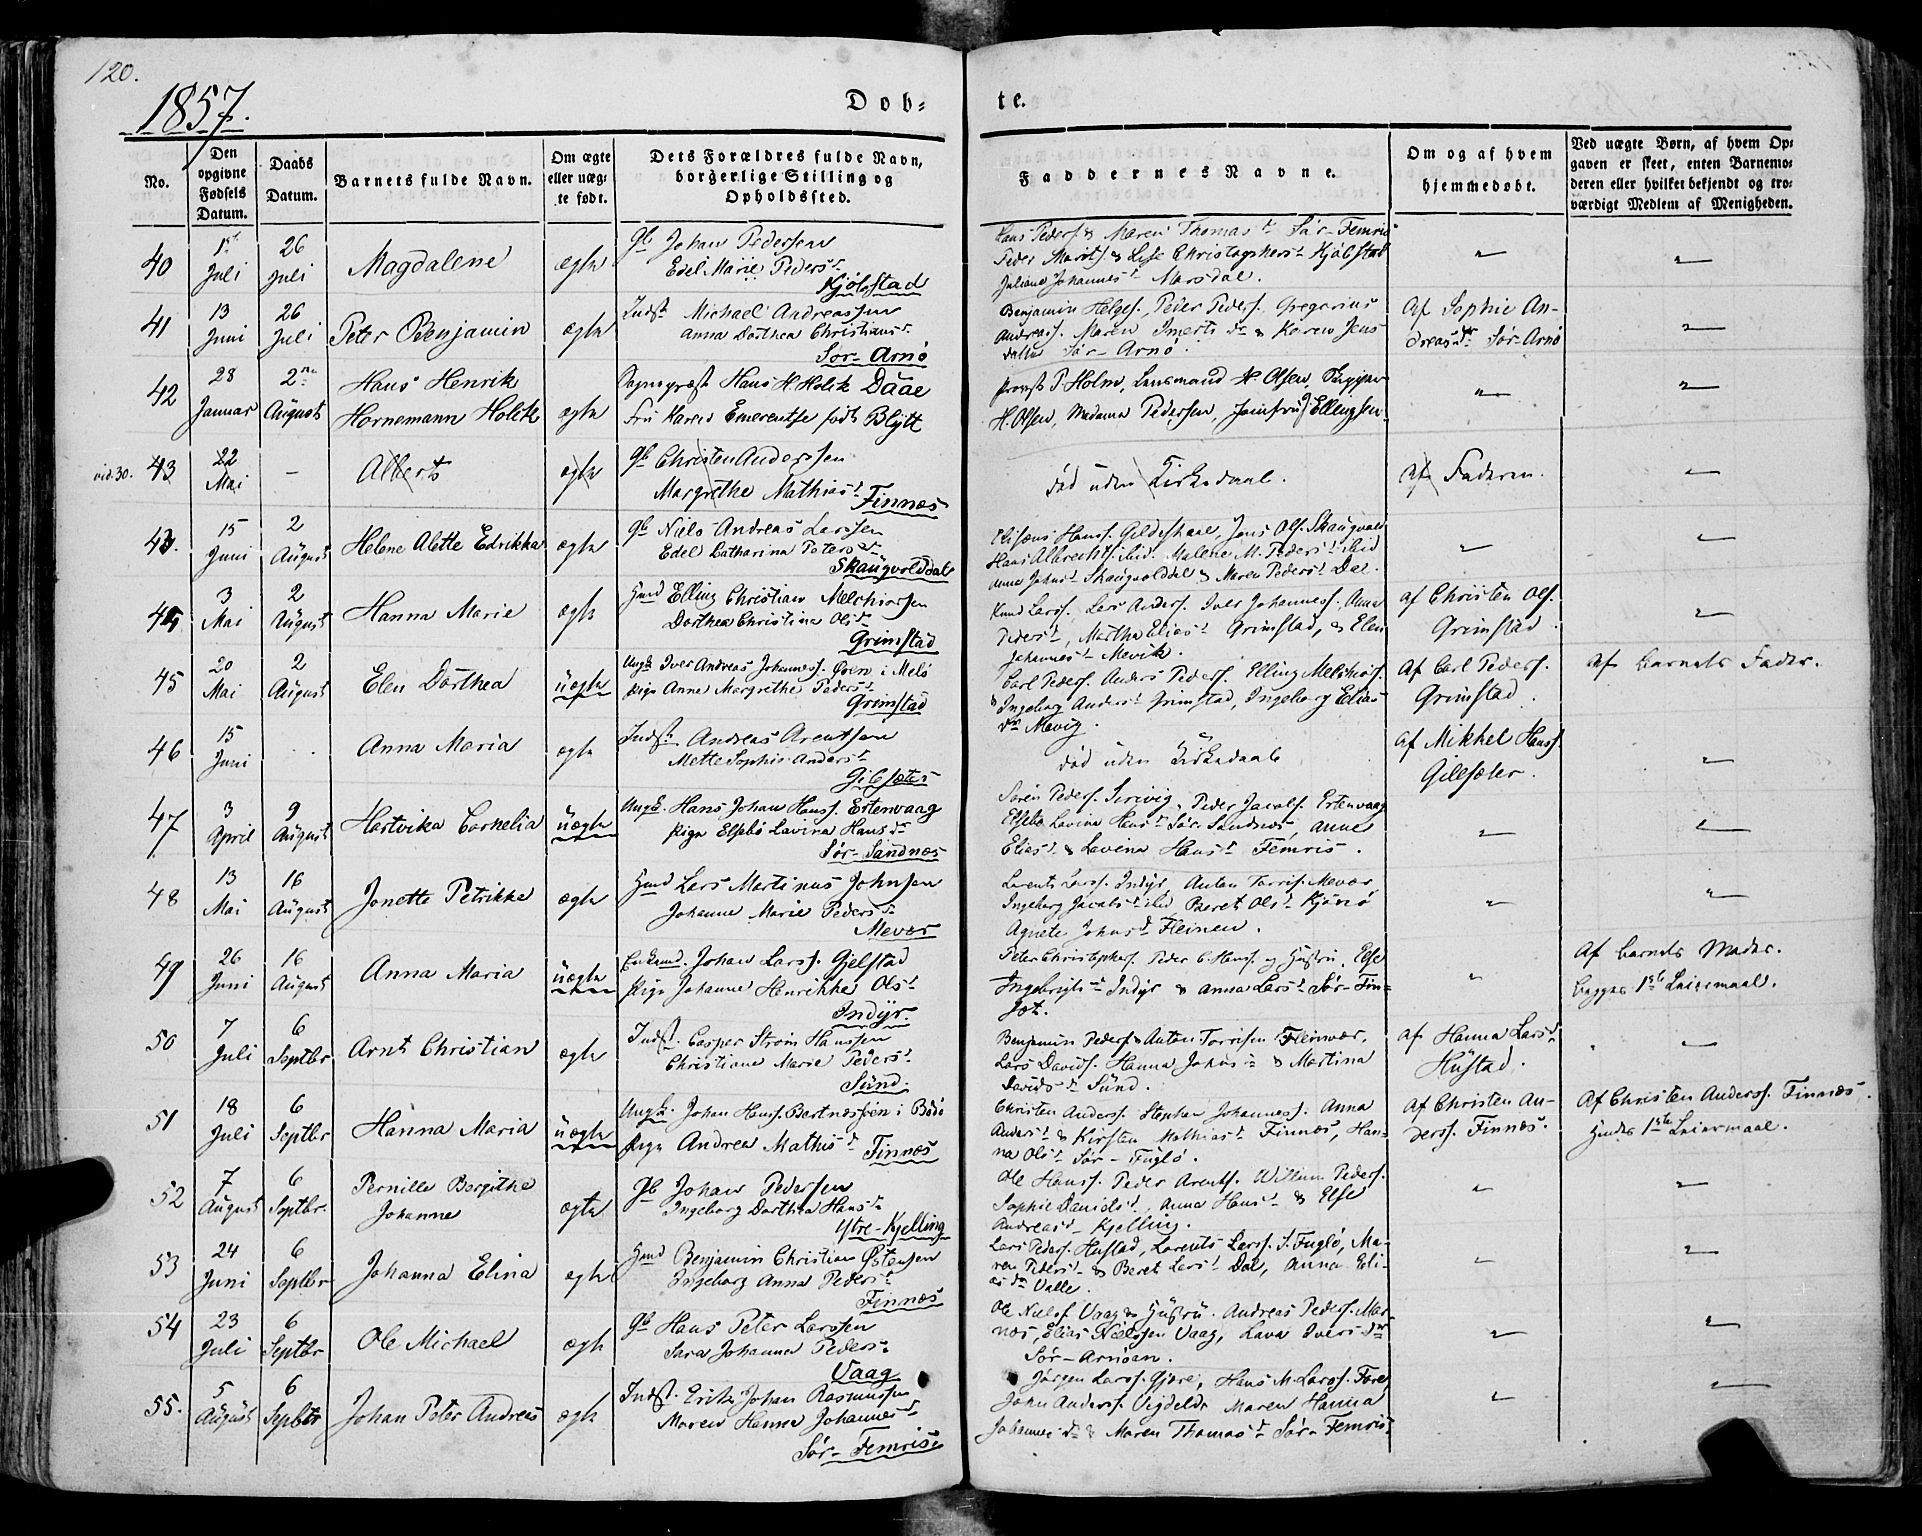 120.
1857.
Døb-
te.
No.
Den opgivne Fødsels Datum.
Daabs Datum.
Barnets fulde Navn.
Om ægte eller uæg-te født.
Dets Forældres fulde Navn, borgerlige Stilling og Opholdssted.
Faddernes Navne.
Om og af hvem hjemmedøbt.
Ved uægte Børn, af hvem Op-gaven er skeet, enten Barnemo-deren eller hvilket bekjendt og tro-værdigt Medlem af Menigheden.
40
1st Juli
26 Juli
Magdalene
ægte
Gb Johan Pedersen
Edel Marie Pedersd
Kjølstad
Hans Peders. & Maren Thomasd Sør-Femris
Peder Morits. & Lise Christophersd Kjølstad
Juliana Johannesd Marsdal.
41
13 Juni
26 Juli
Peter Benjamin
ægte
Indst Michael Andreassen
Anna Dorthea Christiansd
Sør-Arnø
Benjamin Helges. Peder Peders. Gregorius
Andreas. Maren Imertsdr & Karen Jens-
datter Sør-Arnø.
Af Sophie An-
dreasdr Sør-Arnø
42
28 Januar
2den August
Hans Henrik
Hornemann Holck
ægte
Sognepræst Hans H. Holck Daae
Fru Karen Emerentse født Blytt
Provst P. Holm, Lensmand H. Olsen,
H. Olsen, Madama Pedersen, Jomfru Ellingsen
vid. 30.
43
22 Mai
-
Alberts
ægte
Gb Christen Anderssen
Margrethe Mathiasd
Finnæs
død uden Kirkedaab.
af Faderen.
43.
15 Juni
2 August
Helene Alette Edrikka
ægte
Gb Nils Andreas Larssen
Edel Catharina Petersd
Skaugvolddal
Elisæus Hanss. Gildeskaal, Jens Ols. Skaugvold
Hans Albrechts. ibid. Malene M. Pedersd ibid
Anna Johnsd Skaugvolddal & Maren Pedersd Dal.
44
3 Mai
2 August
Hanna Marie
ægte
Hmd Elling Christian Melchiorsen
Dorthea Christina Olsd
Grimstad
Knud Larss. Lars Anders. Iver Johanness. Anna
Pedersd, Martha Eliasd Grimstad, & Elen
Johannesd Mevik.
af Christen Ols.
Grimstad.
45
20 Mai
2 August
Elen Dorthea
uægte
Ungk. Iver Andreas Johanness. Øren i Melø
Pige Anne Margrethe Pedersd
Grimstad
Carl Peders. Anders Peders. Elling Melchiors.
& Ingeborg Andersd Grimstad, Ingeborg Elias-
dr Mevig.
Af Carl Peders.
Grimstad.
Af Barnets Fader.
46
15 Juni
Anna Maria
ægte
Indst. Andreas Arentsen
Mette Sophie Andersd
Gilsæter
død uden Kirkedaab
af Mikkel Hanss.
Gilsæter.
47
3 April
9 August
Hartvika Cornelia
uægte
Ungk. Hans Johan Hanss. Ertenvaag
Pige Elsebø Lavina Hansdr
Sør-Sandnæs
Søren Peders. Serivig, Peder Jacobs. Ertenvaag
Elsebe Lavina Hansd Sør-Sandnæs, Anne
Eliasd & Lavina Hansd Femris.
48
13 Mai
16 August
Jonette Petrikke
ægte
Hmd Lars Martinus Johnsen
Johanne Marie Pedersd
Mevær
Lorents Larss. Indyr, Anton Torris. Mevær,
Ingeborg Jacobsd ibid Beret Olsd
Agnete Johnsd Fleinen.
49
26 Juni
16 August
Anna Maria
uægte
Enkemd. Johan Larss. Gjelstad
Pige Johanne Henrikke Olsd
Indyr.
Peter Christophers. Peder C. Hans. og Hustru, Else
Ingebrigtsd Indyr & Anna Larsd Sør-Fin-
set.
Af Barnets Moder.
Begges 1ste Leiermaal.
50
7 Juli
6 Septbr
Arnt Christian
ægte
Indst. Casper Strøm Hanssen
Christiane Marie Pedersd
Sund.
Benjamin Peders. & Anton Torrisen Fleinvær,
Lars Davids. Hanna Johnsd & Martina
Davidsd Sund.
af Hanna Larsd
Hustad.
51
18 Juli
6 Septbr
Hanna Maria
uægte
Ungk. Johan Hanss. Bertnæssøen i Bodø
Pige Andrea Mathisd Finnæs
Christen Anderss. Stephan Johanness. Anna
Andersd & Kirsten Mathiasd Finnæs, Han-
na Olsd Sør-Fuglø.
Af Christen An-
derss. Finnæs.
Af Christen Anderss. Finnæs.
Hendes 1ste Leiermaal.
52
7 August
6 Septbr.
Pernille Bergithe
Johanne
ægte
Gb Johan Pedersen
Ingeborg Dorthea Hansd
Ytre-Kjelling
Ole Hanss. Peder Arents. Willum Peders.
Sophie Danielsd, Anna Hansd & Else
Andreasd Kjelling.
53
24 Juni
6 Septbr
Johanna Elina
ægte
Hmd Benjamin Christian Østensen
Ingeborg Anna Pedersd
Finnæs
Lars Peders. Hustad, Lorents Larss. S. Fuglø, Ma-
ren Pedersd & Beret Larsd Dal, Anna Eli-
asdr Valle.
54
23 Juli
6 Septbr
Ole Michael
ægte
Gb Hans Peter Larssen
Sara Johanna Pedersd
Vaag
Ole Niels. Vaag & Hustru. Andreas Peders. Mar-
næs, Elias Nielssen Vaag, Lava Iversdr
Sør-Arnøen.
55.
5 August
6 Septbr
Johan Peter Andreas
ægte
Indst. Erik Johan Rasmussen
Maren Hanna Johannesd
Sør-Femris
Jørgen Larss. Gjøre, Hans M. Larss. Fore,
John Anderss. Vigdelds Maren Hanna
Johannesdr & Maren Thomasd Sør-Femris